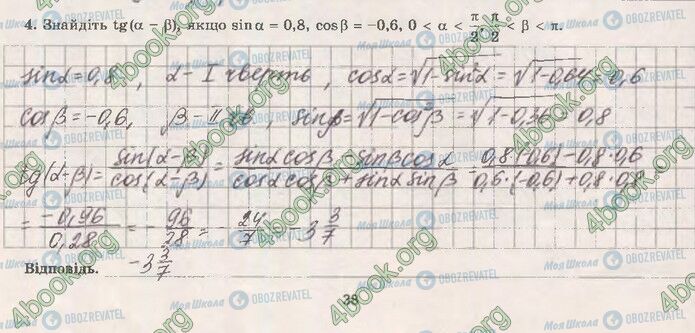 4. Знайдіть tg(α − β), якщо sin α = 0,8, cos β = −0,6, 0 < α < π/2, π/2 < β < π.
sinα = 0,8, α − I чверть, cosα = √(1−sin²α) = √(1−0,64) = 0,6
cosβ = −0,6, β − II чв. sinβ = √(1−cos²β) = √(1−0,36) = 0,8
tg(α−β) = sin(α−β)/cos(α−β) = (sinα cosβ − sinβ cosα)/(cosα cosβ + sinα sinβ) = (0,8·(−0,6) − 0,8·0,6)/(0,6·(−0,6) + 0,8·0,8)
= −0,96/0,28 = −96/28 = −24/7 = −3 3/7
Відповідь. −3 3/7
38
4book.org
Моя Школа OBOZREVATEL